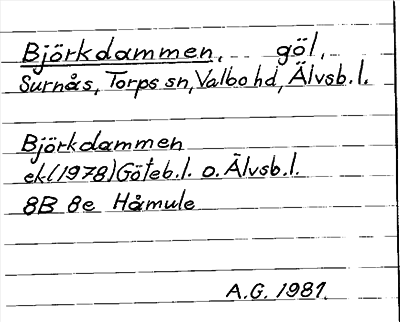 Björkdammen, göl,
Surnås, Torps sn, Valbo hd, Älvsb. l.
Björkdammen
ek (1978) Göteb. l. o. Älvsb. l.
8B 8e Håmule
A.G. 1981.